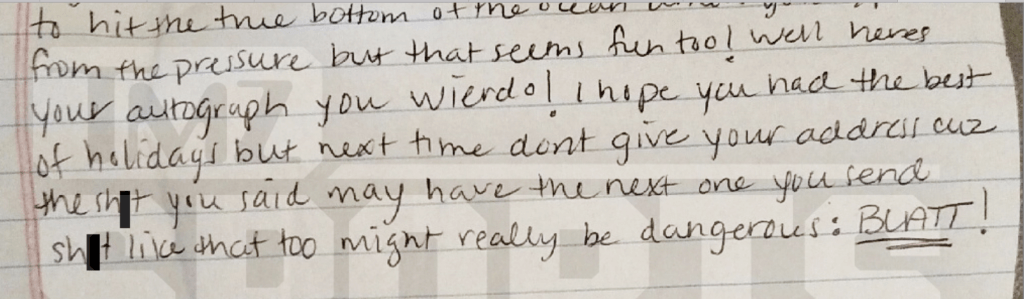 to hit the true bottom of the ocean
from the pressure but that seems fun too! Well heres
your autograph you wierdo! I hope you had the best
of holidays but next time dont give your address cuz
the sh▮t you said may have the next one you send
sh▮t like that too might really be dangerous: BLATT!